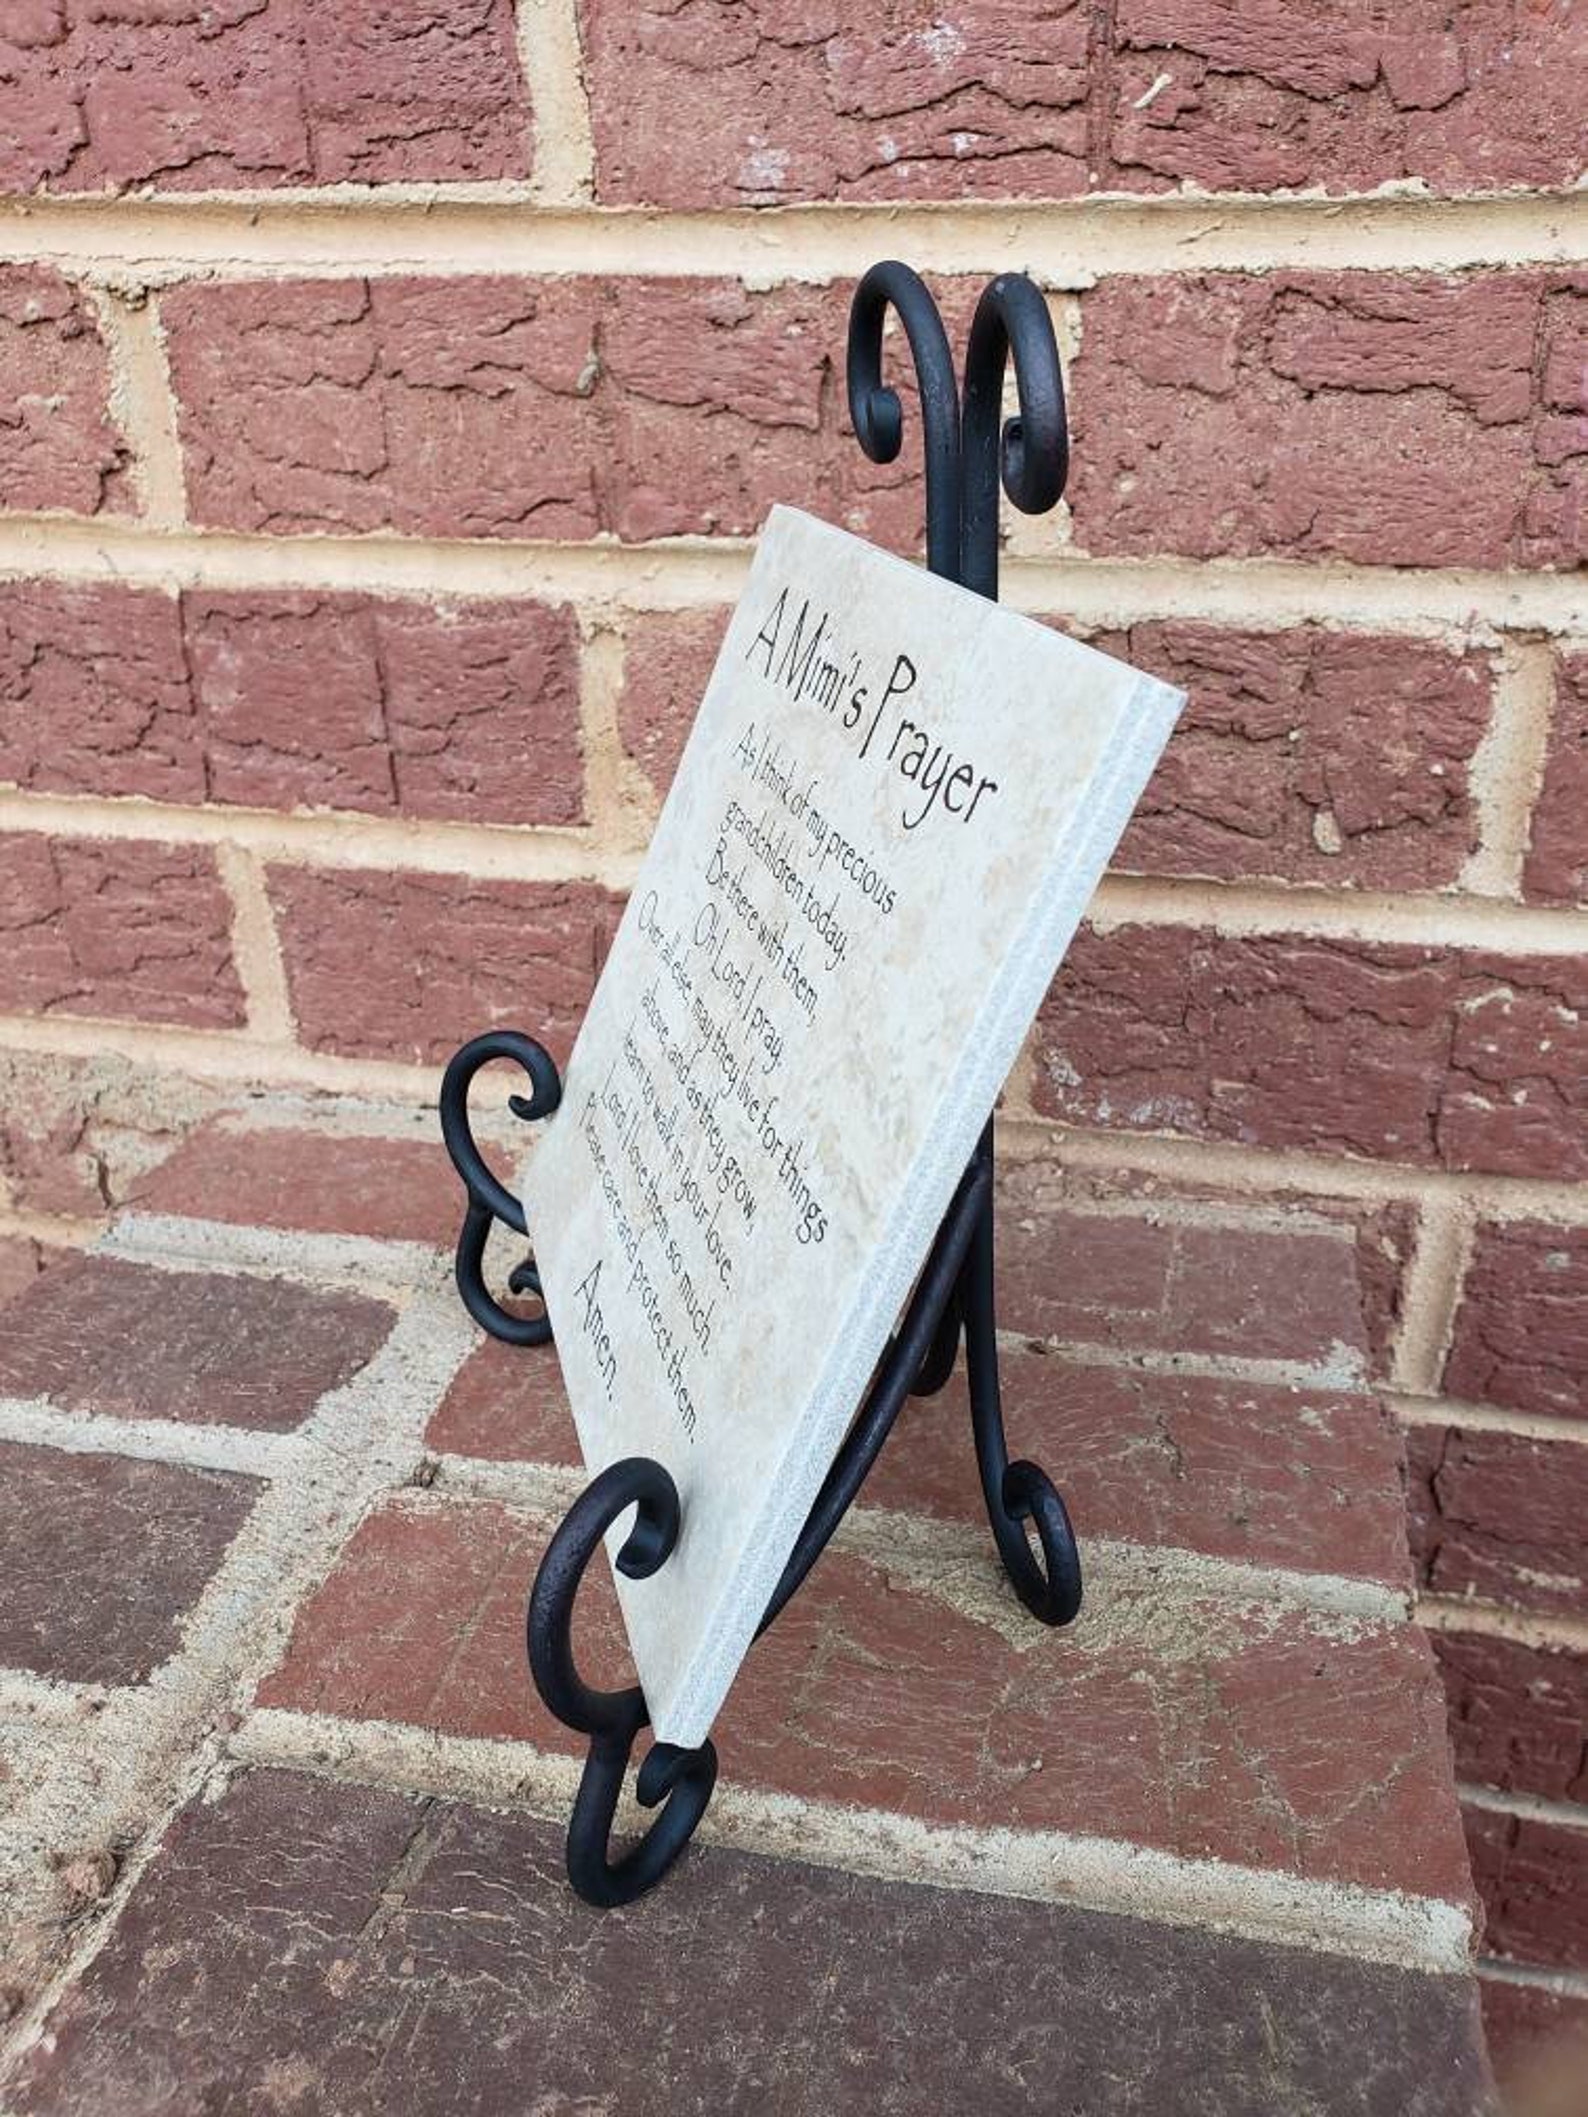 A Mimi's Prayer
As I think of my precious
grandchildren today.
Be there with them,
Oh Lord, I pray.
Over all else, may they live for things
above, and as they grow,
learn to walk in your love.
Lord I love them so much.
Please care and protect them.
Amen.